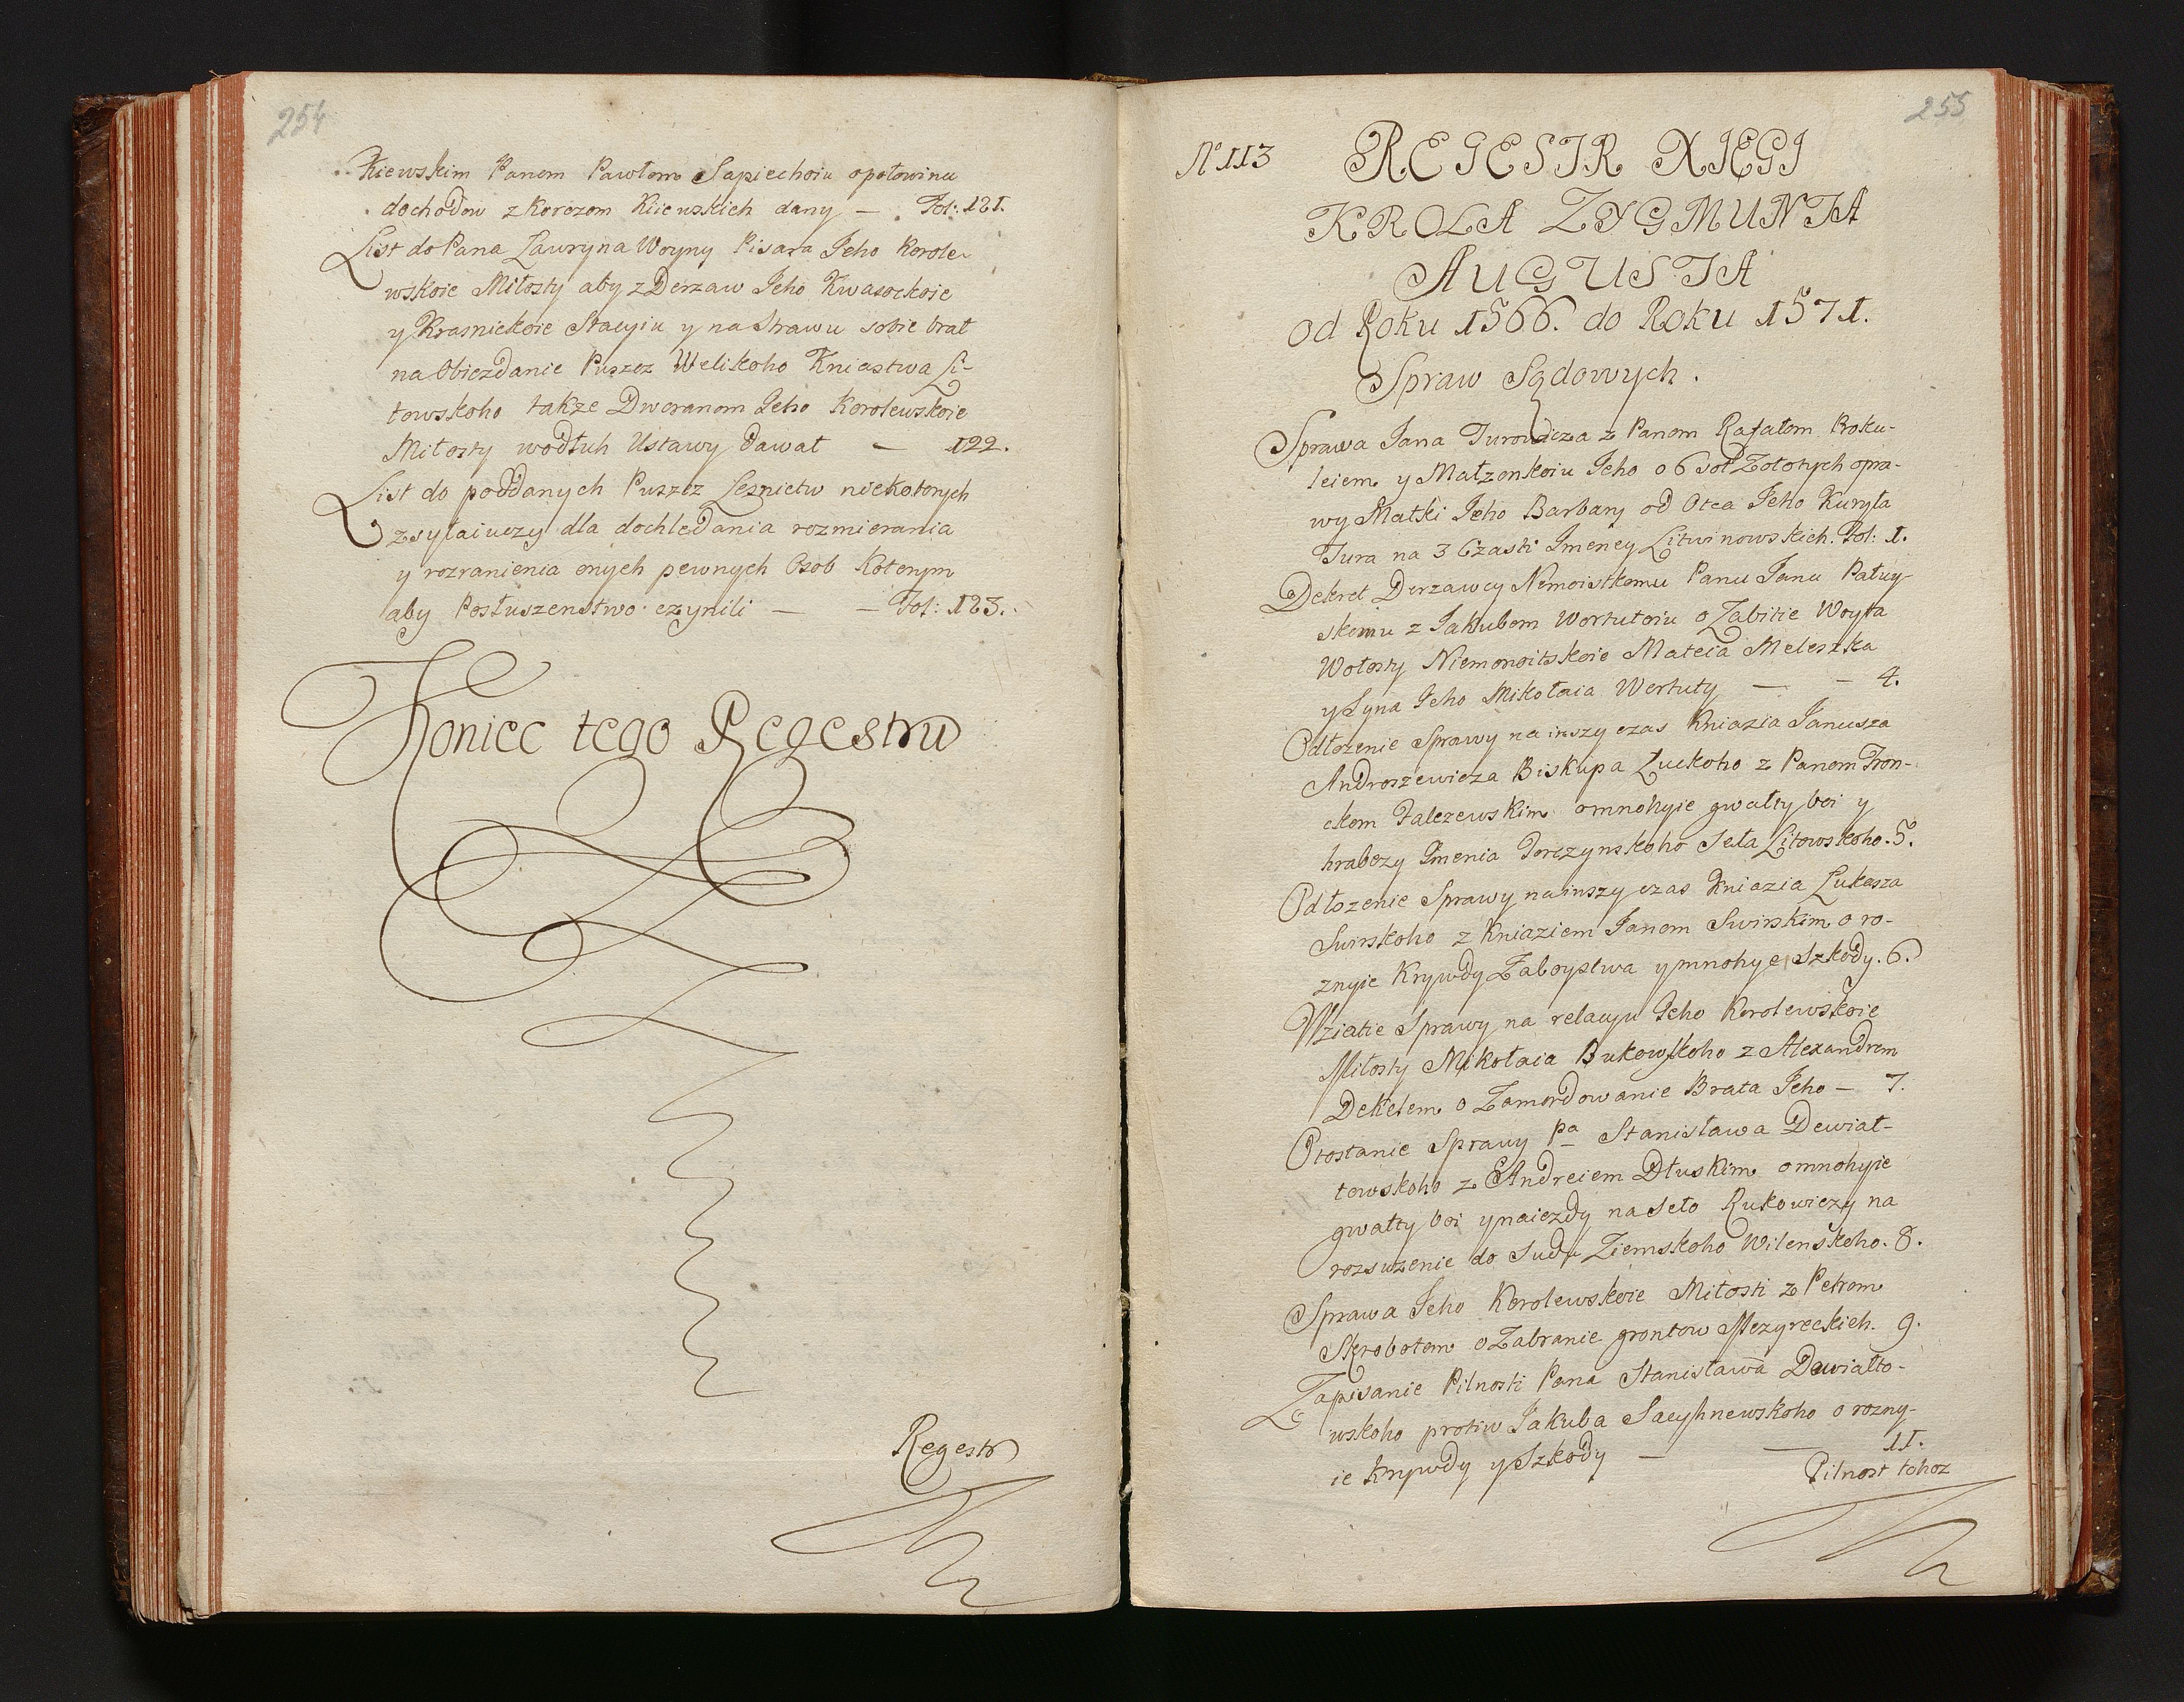 254
Kiewskim Panom Pawłom Sapiechoiu opołowinu
dochodow z Korczom Kiiewskich dany — Fol: 121.
List do Pana Lawryna Woyny Pisara Jeho Korole-
wskoie Miłosty aby z Derzaw Jeho Kwasockoie
y Krasnickoie Stacyiu y na Strawu sobie brał
na Obiezdanie Puszcz Welikoho Kniastwa Li-
towskoho także Dworanom Jeho Korolewskoie
Miłosty wodłuh Ustawy Dawał — 122.
List do poddanych Puszcz Lesnictw niekotorych
zsyłaiuczy dla dochledania rozmierania
y rozranienia onych pewnych Osob Kotorym
aby Posłuszenstwo czynili — — Fol: 123.
Koniec tego Regestru
Regestr
255
No 113
REGESTR XIĘGI
KROLA ZYGMUNTA
AUGUSTA
od Roku 1566. do Roku 1571.
Spraw Sądowych.
Sprawa Jana Turowicza z Panom Rafałom Roku-
leiem y Małzonkoiu Jeho o 6 sot Zołotych opra-
wy Matki Jeho Barbary od Otca Jeho Kuryła
Tura na 3 Czasti Imeney Litwinowskich. Fol: 1.
Dekret Derzawcy Nemoistkomu Panu Janu Patuy-
skomu z Jakubom Wortutoiu o Zabitie Woyta
Wołosty Niemonoitskoie Mateia Meleszka
y Syna Jeho Mikołaia Wertuty — — 4.
Odłozenie Sprawy na inszy czas Kniazia Janusza
Androszewicza Biskupa Łuckoho z Panom Fron-
ckom Falczewskim o mnohyie gwałty boi y
hrabezy Imenia Torczynskoho Seła Litowskoho. 5.
Odłozenie Sprawy na inszy czas Kniazia Lukasza
Swirskoho z Kniaziem Janom Swirskim o ro-
znyie Krywdy Zaboystwa y mnohye Szkody. 6.
Wziatie Sprawy na relacyu Jeho Korolewskoie
Miłosty Mikołaia Bukowskoho z Alexandrom
Deketem o Zamordowanie Brata Jeho — 7.
Otostanie Sprawy Pa Stanisława Dewiał-
towskoho z Andreiem Dłuskim o mnohyie
gwałty boi y naiezdy na Seło Rukowiczy na
rozsuzenie do Sudu Ziemskoho Wilenskoho. 8.
Sprawa Jeho Korolewskoie Miłosti z Petrom
Skrobotom o Zabranie grontow Mezyreckich. 9.
Zapisanie Pilnosti Pana Stanisława Dewiałto-
wskoho protiw Jakuba Sacyhnewskoho o rozny-
ie Krywdy y Szkody — — 11.
Pilnost tohoz